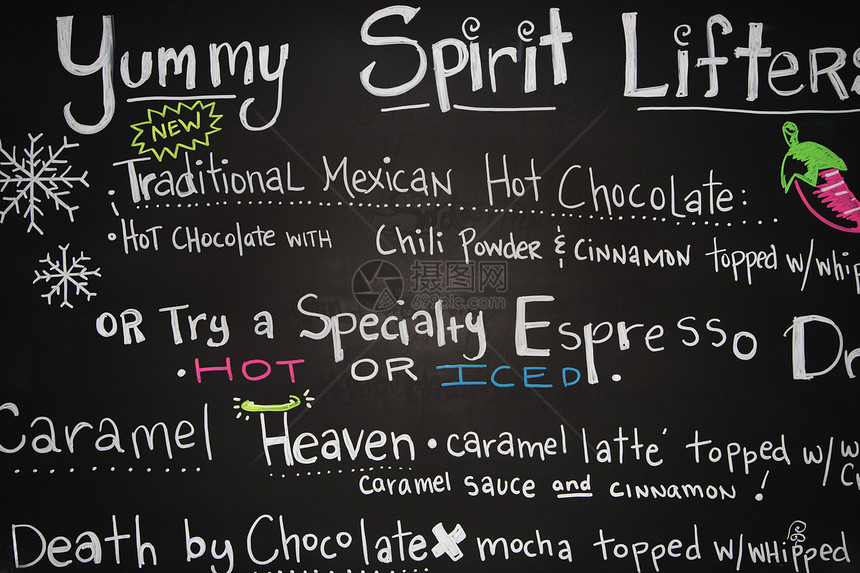 Yummy Spirit Lifters
NEW
Traditional Mexican Hot Chocolate:
• Hot Chocolate with Chili Powder & Cinnamon topped w/whip
OR Try a Specialty Espresso Dr
• HOT OR ICED.
Caramel Heaven • caramel latté topped w/ w
caramel sauce and cinnamon!
Death by Chocolate mocha topped w/whipped
摄图网
699pic.com